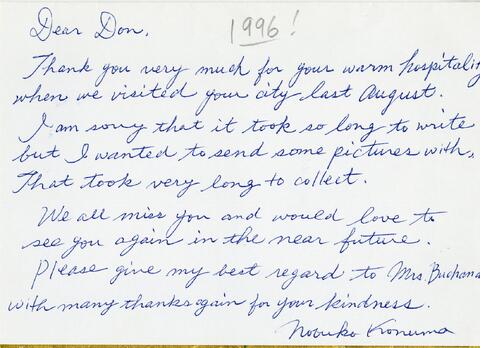 Dear Don,
1996!
Thank you very much for your warm hospitality
when we visited your city last August.
I am sorry that it took so long to write
but I wanted to send some pictures with,
That took very long to collect.
We all miss you and would love to
see you again in the near future.
Please give my best regard to Mrs. Buchana
with many thanks again for your kindness.
Nobuko Konuma